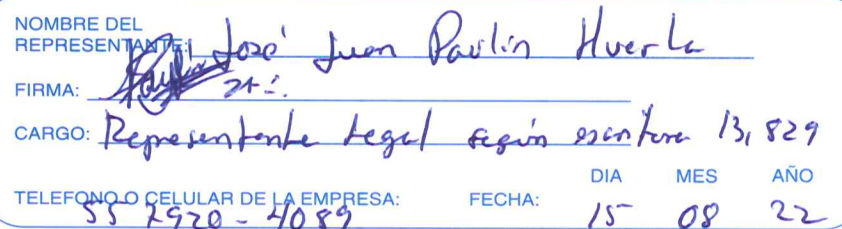 NOMBRE DEL
REPRESENTANTE: José Juan Paulín Huerta
FIRMA:
CARGO: Representante Legal según escritura 13,829
DIA MES AÑO
TELEFONO O CELULAR DE LA EMPRESA: 55 7920-4089 FECHA: 15 08 22